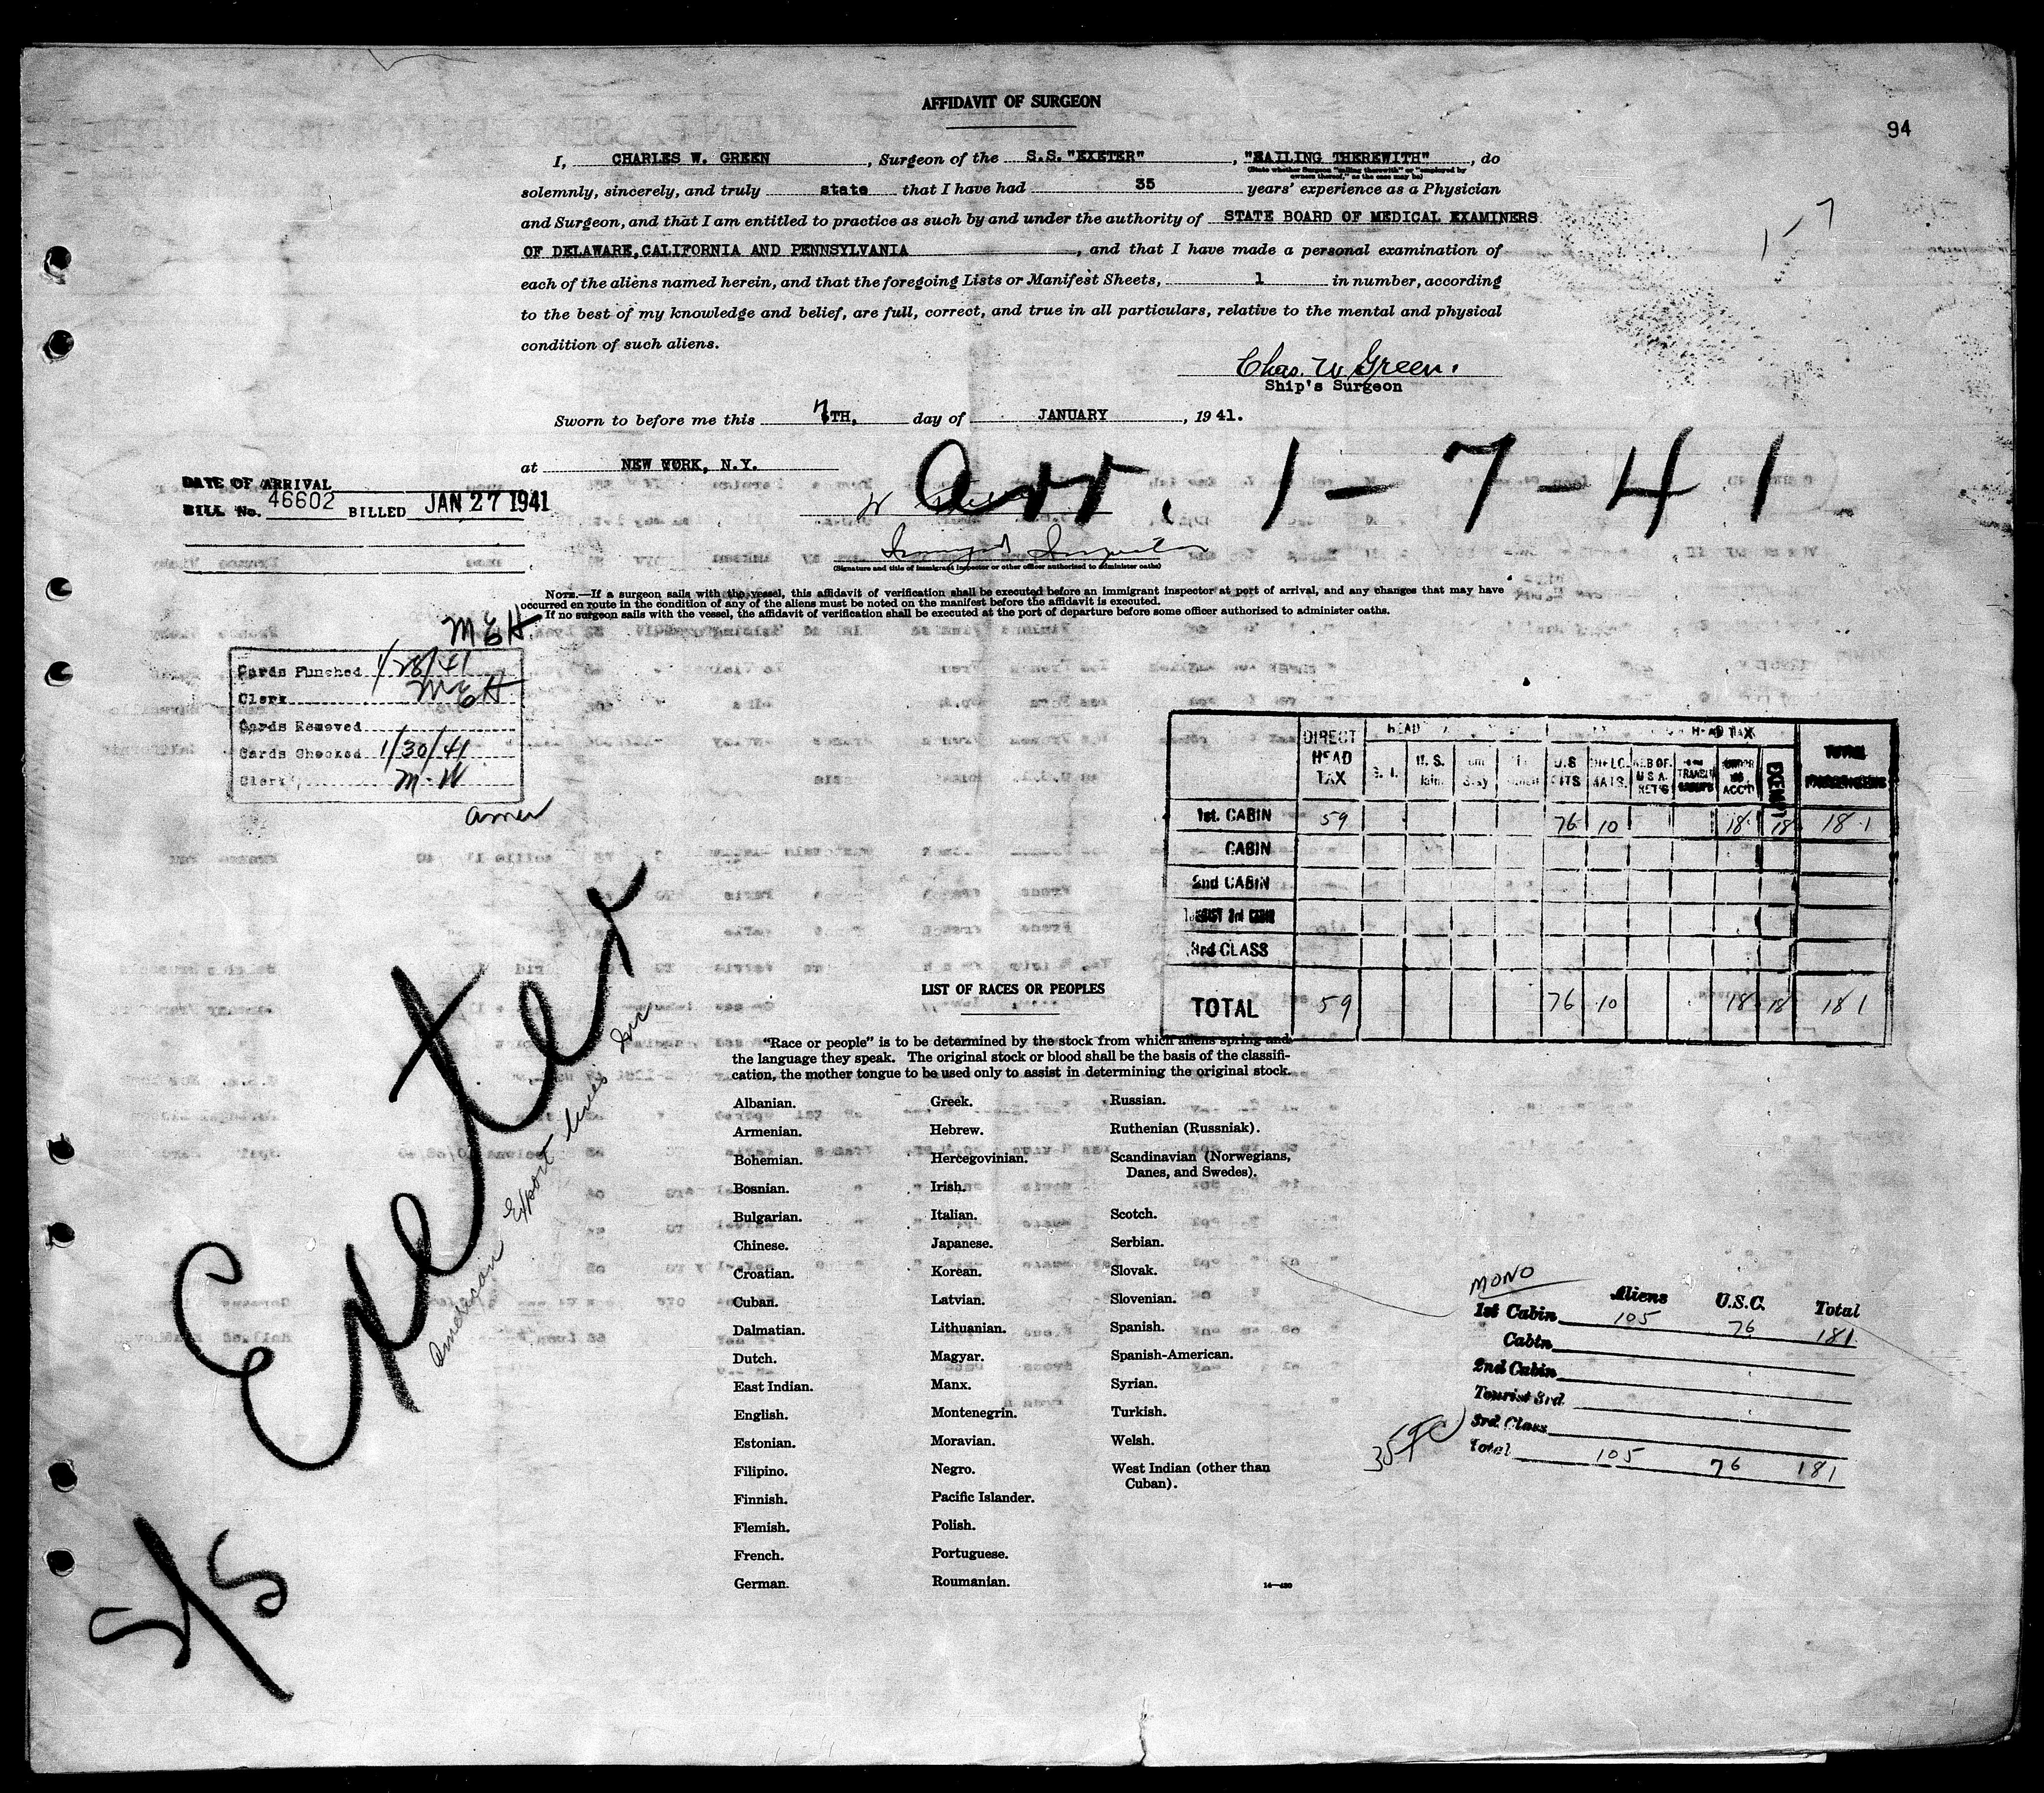 AFFIDAVIT OF SURGEON
94
I, CHARLES W. GREEN, Surgeon of the S.S. "EXETER", "SAILING THEREWITH", do
(State whether Surgeon "sailing therewith" or "employed by
owners thereof," as the case may be)
solemnly, sincerely, and truly state that I have had 35 years' experience as a Physician
and Surgeon, and that I am entitled to practice as such by and under the authority of STATE BOARD OF MEDICAL EXAMINERS
OF DELAWARE, CALIFORNIA AND PENNSYLVANIA, and that I have made a personal examination of
each of the aliens named herein, and that the foregoing Lists or Manifest Sheets, 1 in number, according
to the best of my knowledge and belief, are full, correct, and true in all particulars, relative to the mental and physical
condition of such aliens.
Chas. W Green.
Ship's Surgeon
Sworn to before me this 7TH, day of JANUARY, 1941.
at NEW YORK, N.Y.
Arr. 1-7-41
DATE OF ARRIVAL
BILL No. 46602 BILLED JAN 27 1941
Immigrant Inspector
(Signature and title of immigrant inspector or other officer authorized to administer oaths)
NOTE.—If a surgeon sails with the vessel, this affidavit of verification shall be executed before an immigrant inspector at port of arrival, and any changes that may have
occurred en route in the condition of any of the aliens must be noted on the manifest before the affidavit is executed.
If no surgeon sails with the vessel, the affidavit of verification shall be executed at the port of departure before some officer authorized to administer oaths.
MEH.
Cards Punched 1/28/41
Clerk MEH
Cards Removed
Cards Checked 1/30/41
Clerk M-W
amer
DIRECT HEAD TAX
HEAD
HEAD TAX
U.S. CITS
DIPLOMATS
TRANSIT
EXEMPT
TOTAL PASSENGERS
1st. CABIN 59 76 10 18 18 181
CABIN
2nd CABIN
TOURIST 3rd CABIN
3rd CLASS
TOTAL 59 76 10 18 18 181
S/S Exeter
American Export Lines Inc
LIST OF RACES OR PEOPLES
"Race or people" is to be determined by the stock from which aliens spring and
the language they speak. The original stock or blood shall be the basis of the classifi-
cation, the mother tongue to be used only to assist in determining the original stock.
Albanian.
Armenian.
Bohemian.
Bosnian.
Bulgarian.
Chinese.
Croatian.
Cuban.
Dalmatian.
Dutch.
East Indian.
English.
Estonian.
Filipino.
Finnish.
Flemish.
French.
German.
Greek.
Hebrew.
Hercegovinian.
Irish.
Italian.
Japanese.
Korean.
Latvian.
Lithuanian.
Magyar.
Manx.
Montenegrin.
Moravian.
Negro.
Pacific Islander.
Polish.
Portuguese.
Roumanian.
Russian.
Ruthenian (Russniak).
Scandinavian (Norwegians,
Danes, and Swedes).
Scotch.
Serbian.
Slovak.
Slovenian.
Spanish.
Spanish-American.
Syrian.
Turkish.
Welsh.
West Indian (other than
Cuban).
14—430
MONO
Aliens U.S.C. Total
1st Cabin 105 76 181
Cabin
2nd Cabin
Tourist 3rd
3rd Class
Total 105 76 181